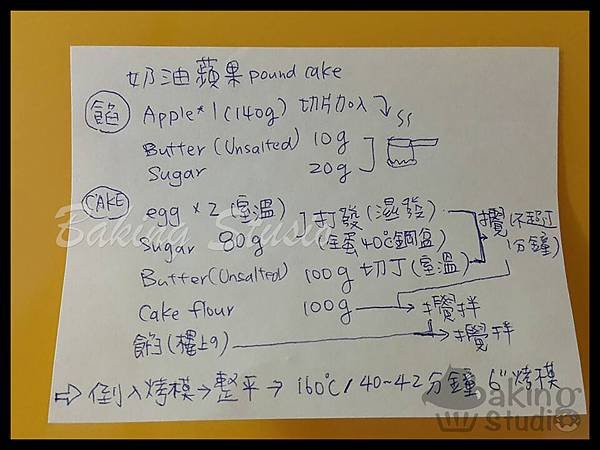 奶油蘋果 pound cake
餡 Apple*1(140g) 切片加入
Butter (Unsalted) 10g
Sugar 20g
CAKE egg × 2 (室溫) 打發 (濕發)
Sugar 80g (全蛋40℃鋼盆)
攪(不超過1分鐘)
Butter(Unsalted) 100g 切丁(室溫)
Cake flour 100g → 攪拌
餡 → 攪拌
⇨ 倒入烤模→整平→ 160℃/40~42分鐘 6" 烤模
Baking Studio
Baking
Studio